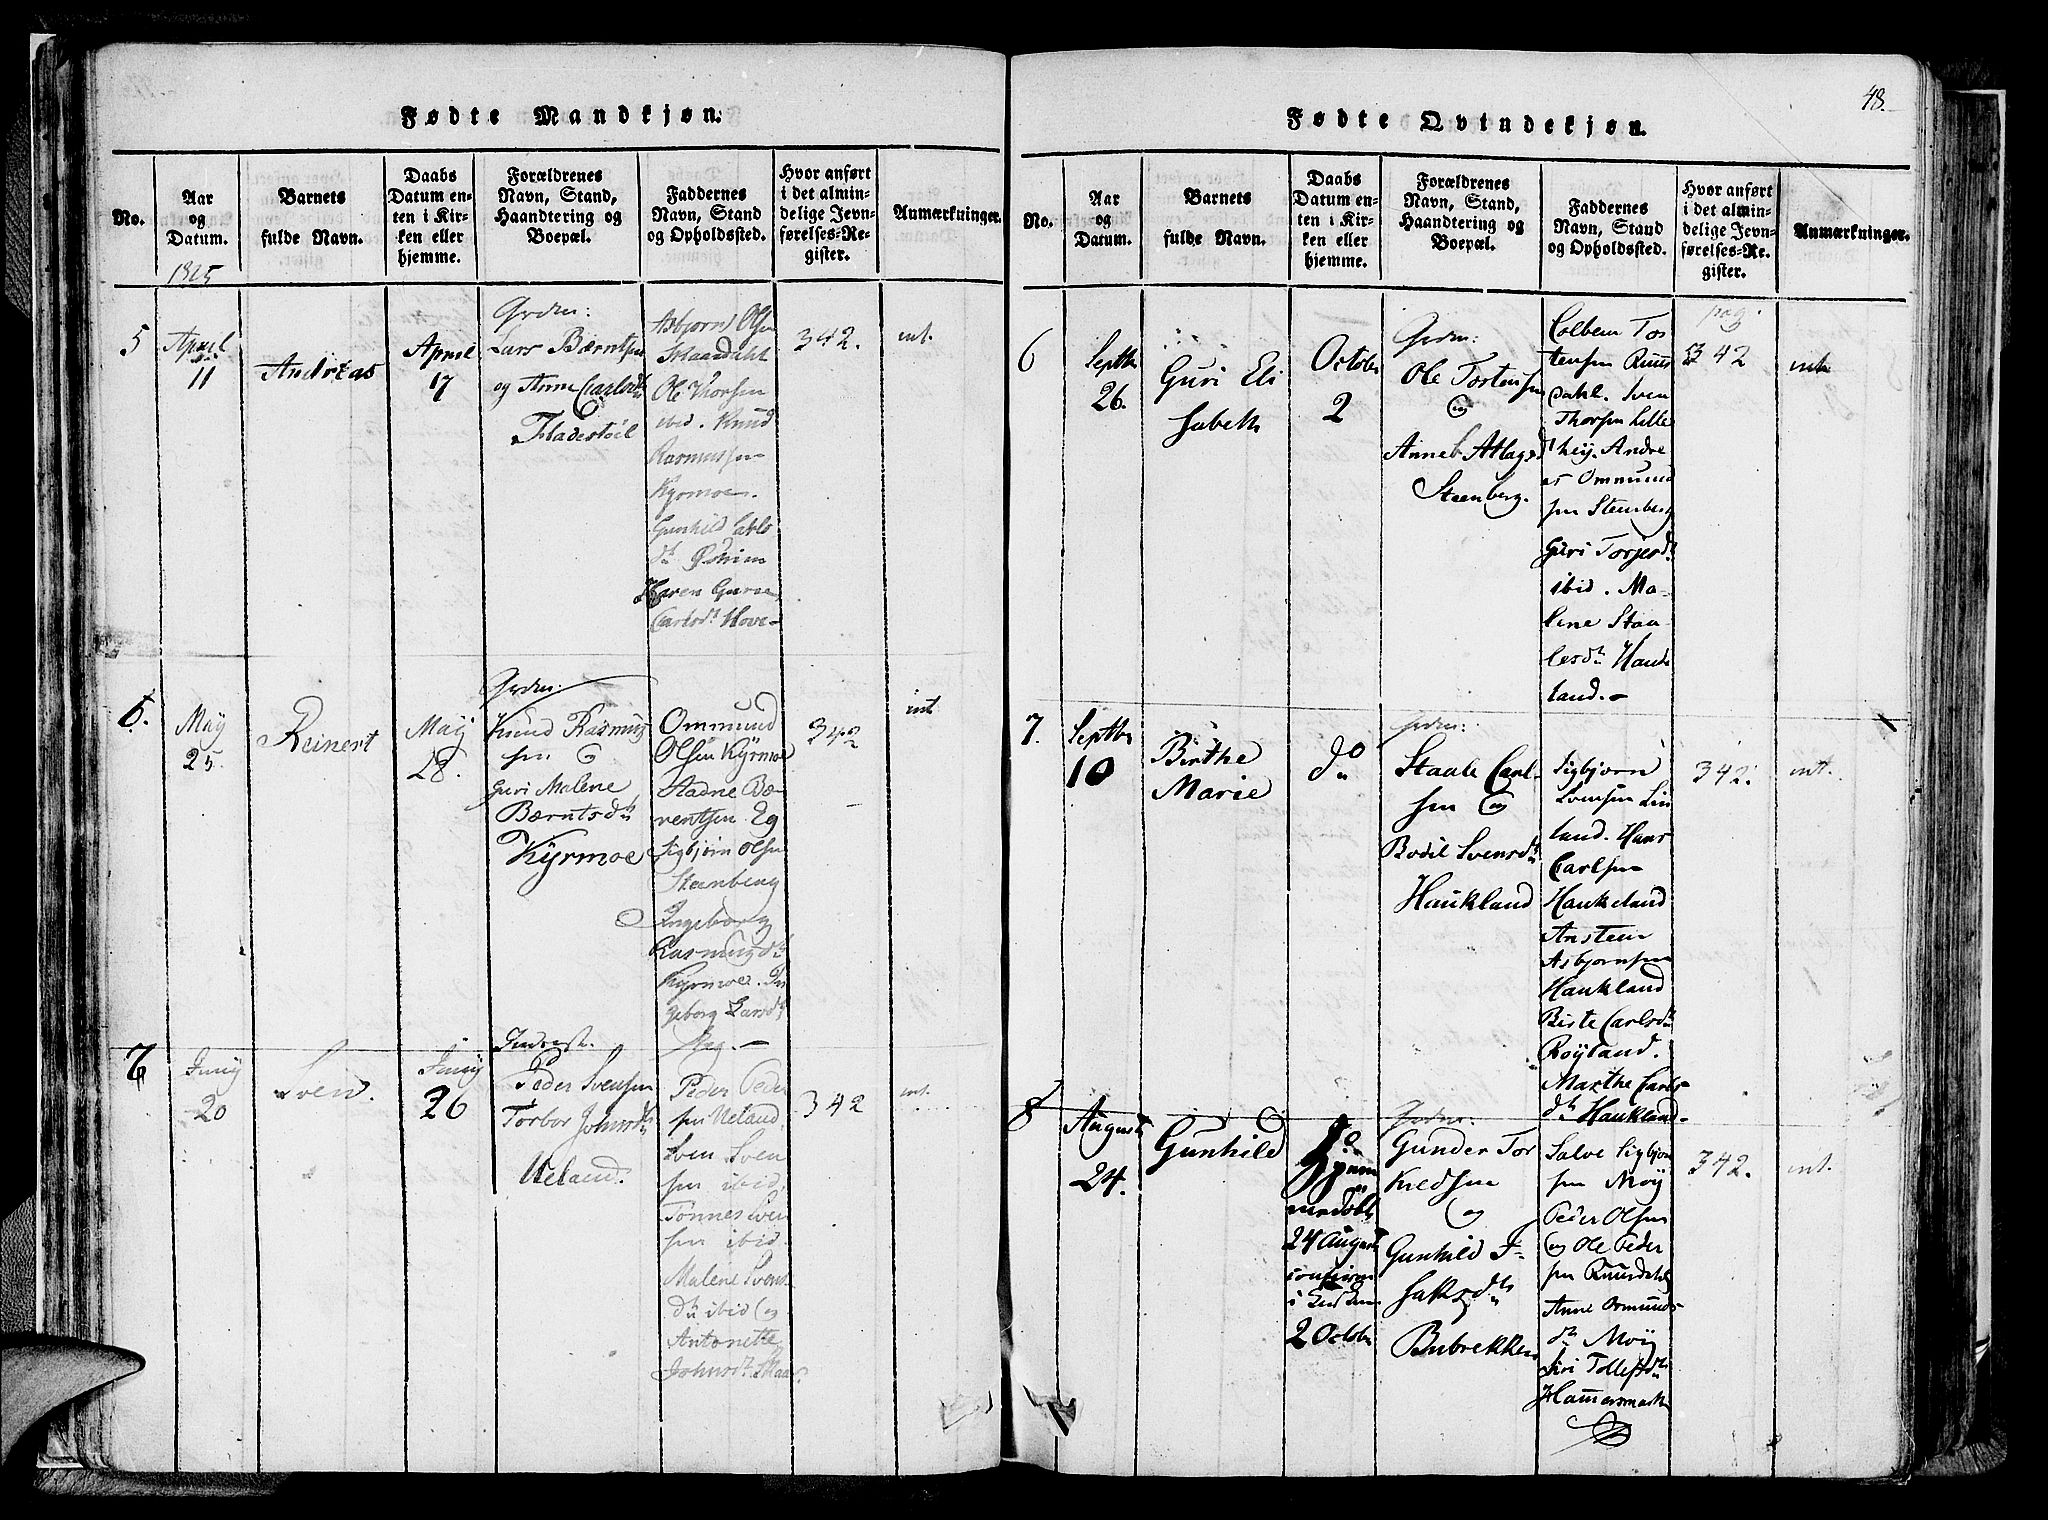 48.
Fødte Mandkjøn.
No.
Aar
og
Datum.
Barnets
fulde Navn.
Daabs
Datum en-
ten i Kir-
ken eller
hjemme.
Forældrenes
Navn, Stand,
Haandtering og
Boepæl.
Faddernes
Navn, Stand
og Opholdssted.
Hvor anført
i det almin-
delige Jevn-
førelses-Re-
gister.
Anmærkninger.
1825
5
April
11
Andreas
April
17
Grdm:
Lars Bærntsen
og Anne Carlsdt
Fladestöel
Asbjorn Olsen
Ole Thorsen
ibid. Knud
Rasmussen
Kyrmoe.
Gunhild Carls
dt
Karen Gurine
Carlsdt Hove-
342.
int.
6.
May
25
Reinert
May
28.
Grdm:
Knud Rasmus
sen &
Guri Malene
Bærntsdtr
Kyrmoe
Ommund
Olsen Kyrmoe
Stadne Bæ-
rentsen Eg
Sigbjörn Olsen
Steenberg
Ingeborg
Rasmusdt
Kyrmoe. In
geborg Larsdt
Aag. -
342
int
7
Juny
20
Sven.
Juny
26
Inderst.
Peder Svensen
Torbor Johnsdt
Ueland.
Peder Peder
sen Ueland,
Sven Sven
sen ibid,
Tönnes Sven
sen ibid.
Malene Svens
dtr ibid og
Antonette
Johnsdt
342
int.
Fødte Qvindekjøn.
No.
Aar
og
Datum.
Barnets
fulde Navn.
Daabs
Datum en-
ten i Kir-
ken eller
hjemme.
Forældrenes
Navn, Stand,
Haandtering og
Boepæl.
Faddernes
Navn, Stand
og Opholdssted.
Hvor anført
i det almin-
delige Jevn-
førelses-Re-
gister.
Anmærkninger.
6
Septbr
26.
Guri Eli
sabeth
Octobr
2
Grdm:
Ole Tortensen
og
Anne Atlagsd
Steenberg.
Colbeen Tor
tensen Ruus
dahl. Sven
Thorsen Lille
hey. Andre
as Ommund
sen Steenberg
Guri Torjersdt
ibid. Ma-
lene Staa-
lesdtr Hauk
land. -
pag.
342
int
7.
Septbr
10
Birthe
Marie
do
Grdm:
Staale Carl-
sen og
Bodil Svensdt
Haukland
Sigbjorn
Svensen Lin
land. Hans
Carlsen
Haukeland
Ansteen
Asbjornsen
Haukland
Birte Carlsdtr
Röyland.
Marthe Carls-
dtr Haukland-
342.
int.
8
August
24.
Gunhild
do
Hjem
medöbt
24 August
i
2 Octobr
Grdm:
Gunder Tor
kildsen
og
Gunhild I-
saksdtr
Bubrekken
Salve Sigbjorn
sen Moÿ
Peder Olsen
og Ole Peder
sen Ruusdahl
Anne Ormunds
dtr Moÿ
Siri Tollefsdtr
Hammersmark
342.
int.